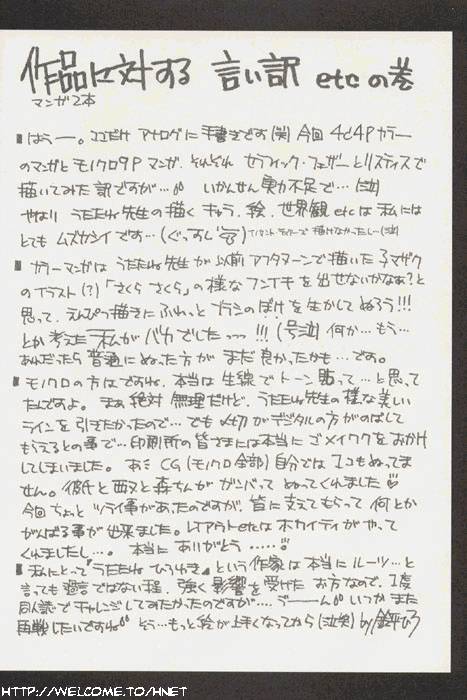 作品に対する 言い訳 etcの巻
マンガ2本
■はうー。ココだけ アナログに 手書きです(笑) 今回 4c4P カラー
のマンガとモノクロ9P マンガ、それぞれ セラフィック・フェザーとリスティスで
描いてみた 訳ですが…。 いかんせん 実力不足で…(泣)
やはり うたたね先生の描く キャラ、絵、世界観 etcは 私には
とても ムズカシイです…(ぐっすし) で描けなかったしー(泣)
■カラーマンガは うたたね先生が以前 アフタヌーンで描いた
のイラスト(?)「さくら さくら」の様な フンイキ を出せないかなぁ?と
思って、えんぴつ描きに ふわっと ブラシのぼけを生かしてぬろう!!!
とか考えた 私が バカでしたっっ !!! (号泣) 何か…もう…
あれだったら 普通にぬった方が まだ良かったかも…です。
■モノクロの方はですね、本当は 生線で トーン貼って…と思って
たんですよ。 まぁ 絶対 無理だけど、うたたね先生の様な美しい
ラインを引きたかったので… でも〆切がデジタルの方がのばして
もらえるとの事で…印刷所の皆さまには本当にゴメイワクをおかけ
してしまいました。 あと CG(モノクロ全部)自分では 1コもぬってま
せん。彼氏と 西又と森ちんが ガンバって ぬってくれました♡
今回 ちょっと ツライ事があったのですが、皆に支えてもらって 何とか
がんばる事が出来ました。レイアウトetcは ホカイティが やって
くれましたし…。 本当に ありがとう …‥♡
■私にとって『うたたね ひろゆき』という作家は 本当に ルーツ…と
言っても 過言ではない程、強く 影響を受けた お方なので、1度
同人誌で チャレンジしてみたかったのですが…。うーーん いつか また
再戦したいですね そう…もっと絵が上手くなってから(泣笑) by
HTTP://WELCOME.TO/HNET